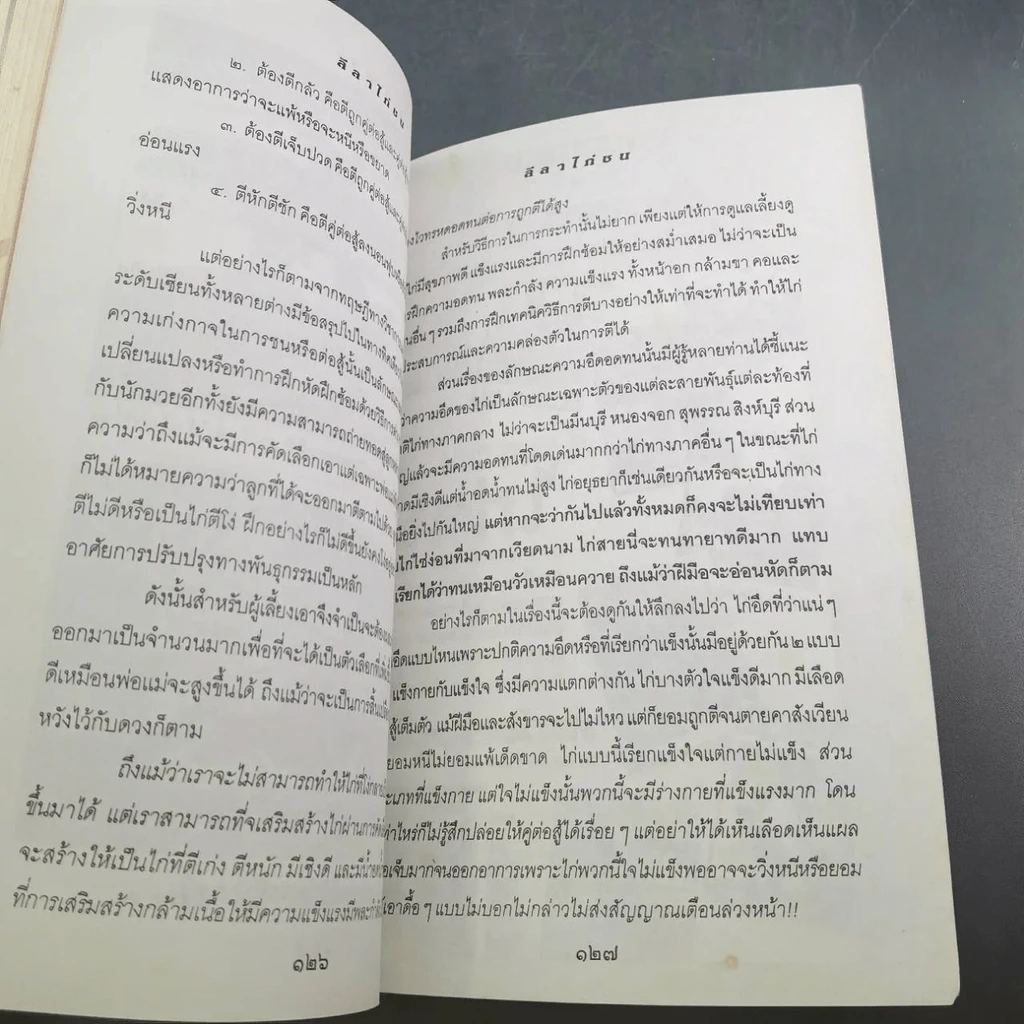 ลีลาไก่ชน
๒. ต้องตีกลัว คือตีถูกคู่ต่อสู้และ
แสดงอาการว่าจะแพ้หรือจะหนีหรือขยาด
๓. ต้องตีเจ็บปวด คือตีถูกคู่ต่อสู้และ
อ่อนแรง
๔. ตีหักตีชัก คือตีคู่ต่อสู้ลงนอน
วิ่งหนี
แต่อย่างไรก็ตามจากทฤษฎีทางวิชาการ
ระดับเซียนทั้งหลายต่างมีข้อสรุปไปในทาง
ความเก่งกาจในการชนหรือต่อสู้นั้นเป็น
เปลี่ยนแปลงหรือทำการฝึกหัดฝึกซ้อมด้วยวิธีการ
กับนักมวยอีกทั้งยังมีความสามารถถ่ายทอด
ความว่าถึงแม้จะมีการคัดเลือกเอาแต่เฉพาะ
ก็ไม่ได้หมายความว่าลูกที่ได้จะออกมาตีตาม
ตีไม่ดีหรือเป็นไก่ตีโง่ ฝึกอย่างไรก็ไม่ดีขึ้น
อาศัยการปรับปรุงทางพันธุกรรมเป็นหลัก
ดังนั้นสำหรับผู้เลี้ยงเอาจึงจำเป็นจะต้อง
ออกมาเป็นจำนวนมากเพื่อที่จะได้เป็นตัวเลือก
ดีเหมือนพ่อแม่จะสูงขึ้นได้ ถึงแม้ว่าจะเป็นการ
หวังไว้กับดวงก็ตาม
ถึงแม้ว่าเราจะไม่สามารถทำให้ไก่ที่โง่
ขึ้นมาได้ แต่เราสามารถที่จะเสริมสร้างไก่ผ่านการ
จะสร้างให้เป็นไก่ที่ตีเก่ง ตีหนัก มีเชิงดี และมี
ที่การเสริมสร้างกล้ามเนื้อให้มีความแข็งแรงมี
๑๒๖
ลีลาไก่ชน
ทรหดอดทนต่อการถูกตีได้สูง
สำหรับวิธีการในการกระทำนั้นไม่ยาก เพียงแต่ให้การดูแลเลี้ยงดู
ไก่มีสุขภาพดี แข็งแรงและมีการฝึกซ้อมให้อย่างสม่ำเสมอ ไม่ว่าจะเป็น
ฝึกความอดทน พละกำลัง ความแข็งแรง ทั้งหน้าอก กล้ามขา คอและ
อื่นๆ รวมถึงการฝึกเทคนิควิธีการตีบางอย่างให้เท่าที่จะทำได้ ทำให้ไก่
ประสบการณ์และความคล่องตัวในการตีได้
ส่วนเรื่องของลักษณะความอึดอดทนนั้นมีผู้รู้หลายท่านได้ชี้แนะ
ว่าความอึดของไก่เป็นลักษณะเฉพาะตัวของแต่ละสายพันธุ์แต่ละท้องที่
ไก่ทางภาคกลาง ไม่ว่าจะเป็นมีนบุรี หนองจอก สุพรรณ สิงห์บุรี ส่วน
แล้วจะมีความอดทนที่โดดเด่นมากกว่าไก่ทางภาคอื่นๆ ในขณะที่ไก่
มีเชิงดีแต่น้ำอดน้ำทนไม่สูง ไก่อยุธยาก็เช่นเดียวกันหรือจะเป็นไก่ทาง
ยิ่งไปกันใหญ่ แต่หากจะว่ากันไปแล้วทั้งหมดก็คงจะไม่เทียบเท่า
ไก่ไซ่ง่อนที่มาจากเวียดนาม ไก่สายนี้จะทนทายาทดีมาก แทบ
เรียกได้ว่าทนเหมือนวัวเหมือนควาย ถึงแม้ว่าฝีมือจะอ่อนหัดก็ตาม
อย่างไรก็ตามในเรื่องนี้จะต้องดูกันให้ลึกลงไปว่า ไก่อึดที่ว่าแน่ๆ
อึดแบบไหนเพราะปกติความอึดหรือที่เรียกว่าแข็งนั้นมีอยู่ด้วยกัน ๒ แบบ
แข็งกายกับแข็งใจ ซึ่งมีความแตกต่างกัน ไก่บางตัวใจแข็งดีมาก มีเลือด
สู้เต็มตัว แม้ฝีมือและสังขารจะไปไม่ไหว แต่ก็ยอมถูกตีจนตายคาสังเวียน
ยอมหนีไม่ยอมแพ้เด็ดขาด ไก่แบบนี้เรียกแข็งใจแต่กายไม่แข็ง ส่วน
ที่แข็งกาย แต่ใจไม่แข็งนั้นพวกนี้จะมีร่างกายที่แข็งแรงมาก โดน
ก็ไม่รู้สึกปล่อยให้คู่ต่อสู้ได้เรื่อยๆ แต่อย่าให้ได้เห็นเลือดเห็นแผล
เจ็บมากจนออกอาการเพราะไก่พวกนี้ใจไม่แข็งพออาจจะวิ่งหนีหรือยอม
เอาดื้อๆ แบบไม่บอกไม่กล่าวไม่ส่งสัญญาณเตือนล่วงหน้า!!
๑๒๗